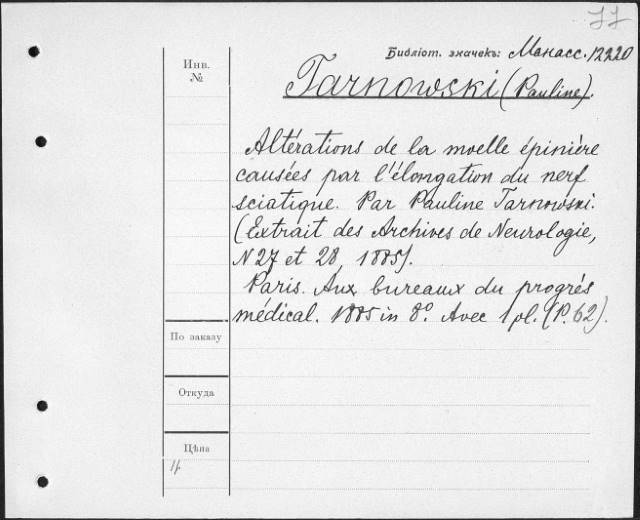 77
Библіот. значекъ: Манасс. 12220
Инв.
№
Tarnowski (Pauline).
Altérations de la moelle épinière
causées par l'élongation du nerf
sciatique. Par Pauline Tarnowski.
(Extrait des Archives de Neurologie,
N 27 et 28, 1885).
Paris. Aux bureaux du progrés
médical. 1885 in 8º. Avec 1 pl. (P. 62).
По заказу
Откуда
Цѣна